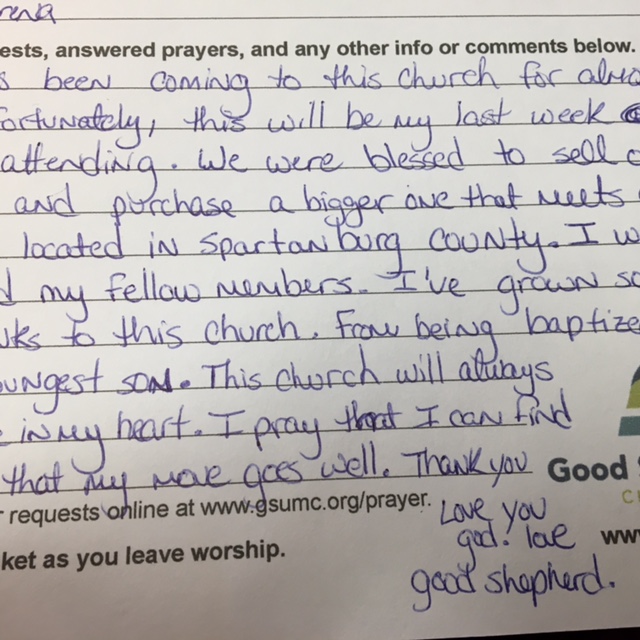 rena
ests, answered prayers, and any other info or comments below.
s been coming to this church for
fortunately, this will be my last week
attending. We were blessed to sell
and purchase a bigger one that meets
located in Spartanburg County. I
my fellow members. I've grown so
to this church. From being baptize
oungest son. This church will always
in my heart. I pray that I can find
that my move goes well. Thank you
Good
requests online at www.gsumc.org/prayer.
Love you
god. love
ww
ket as you leave worship.
good shepherd.